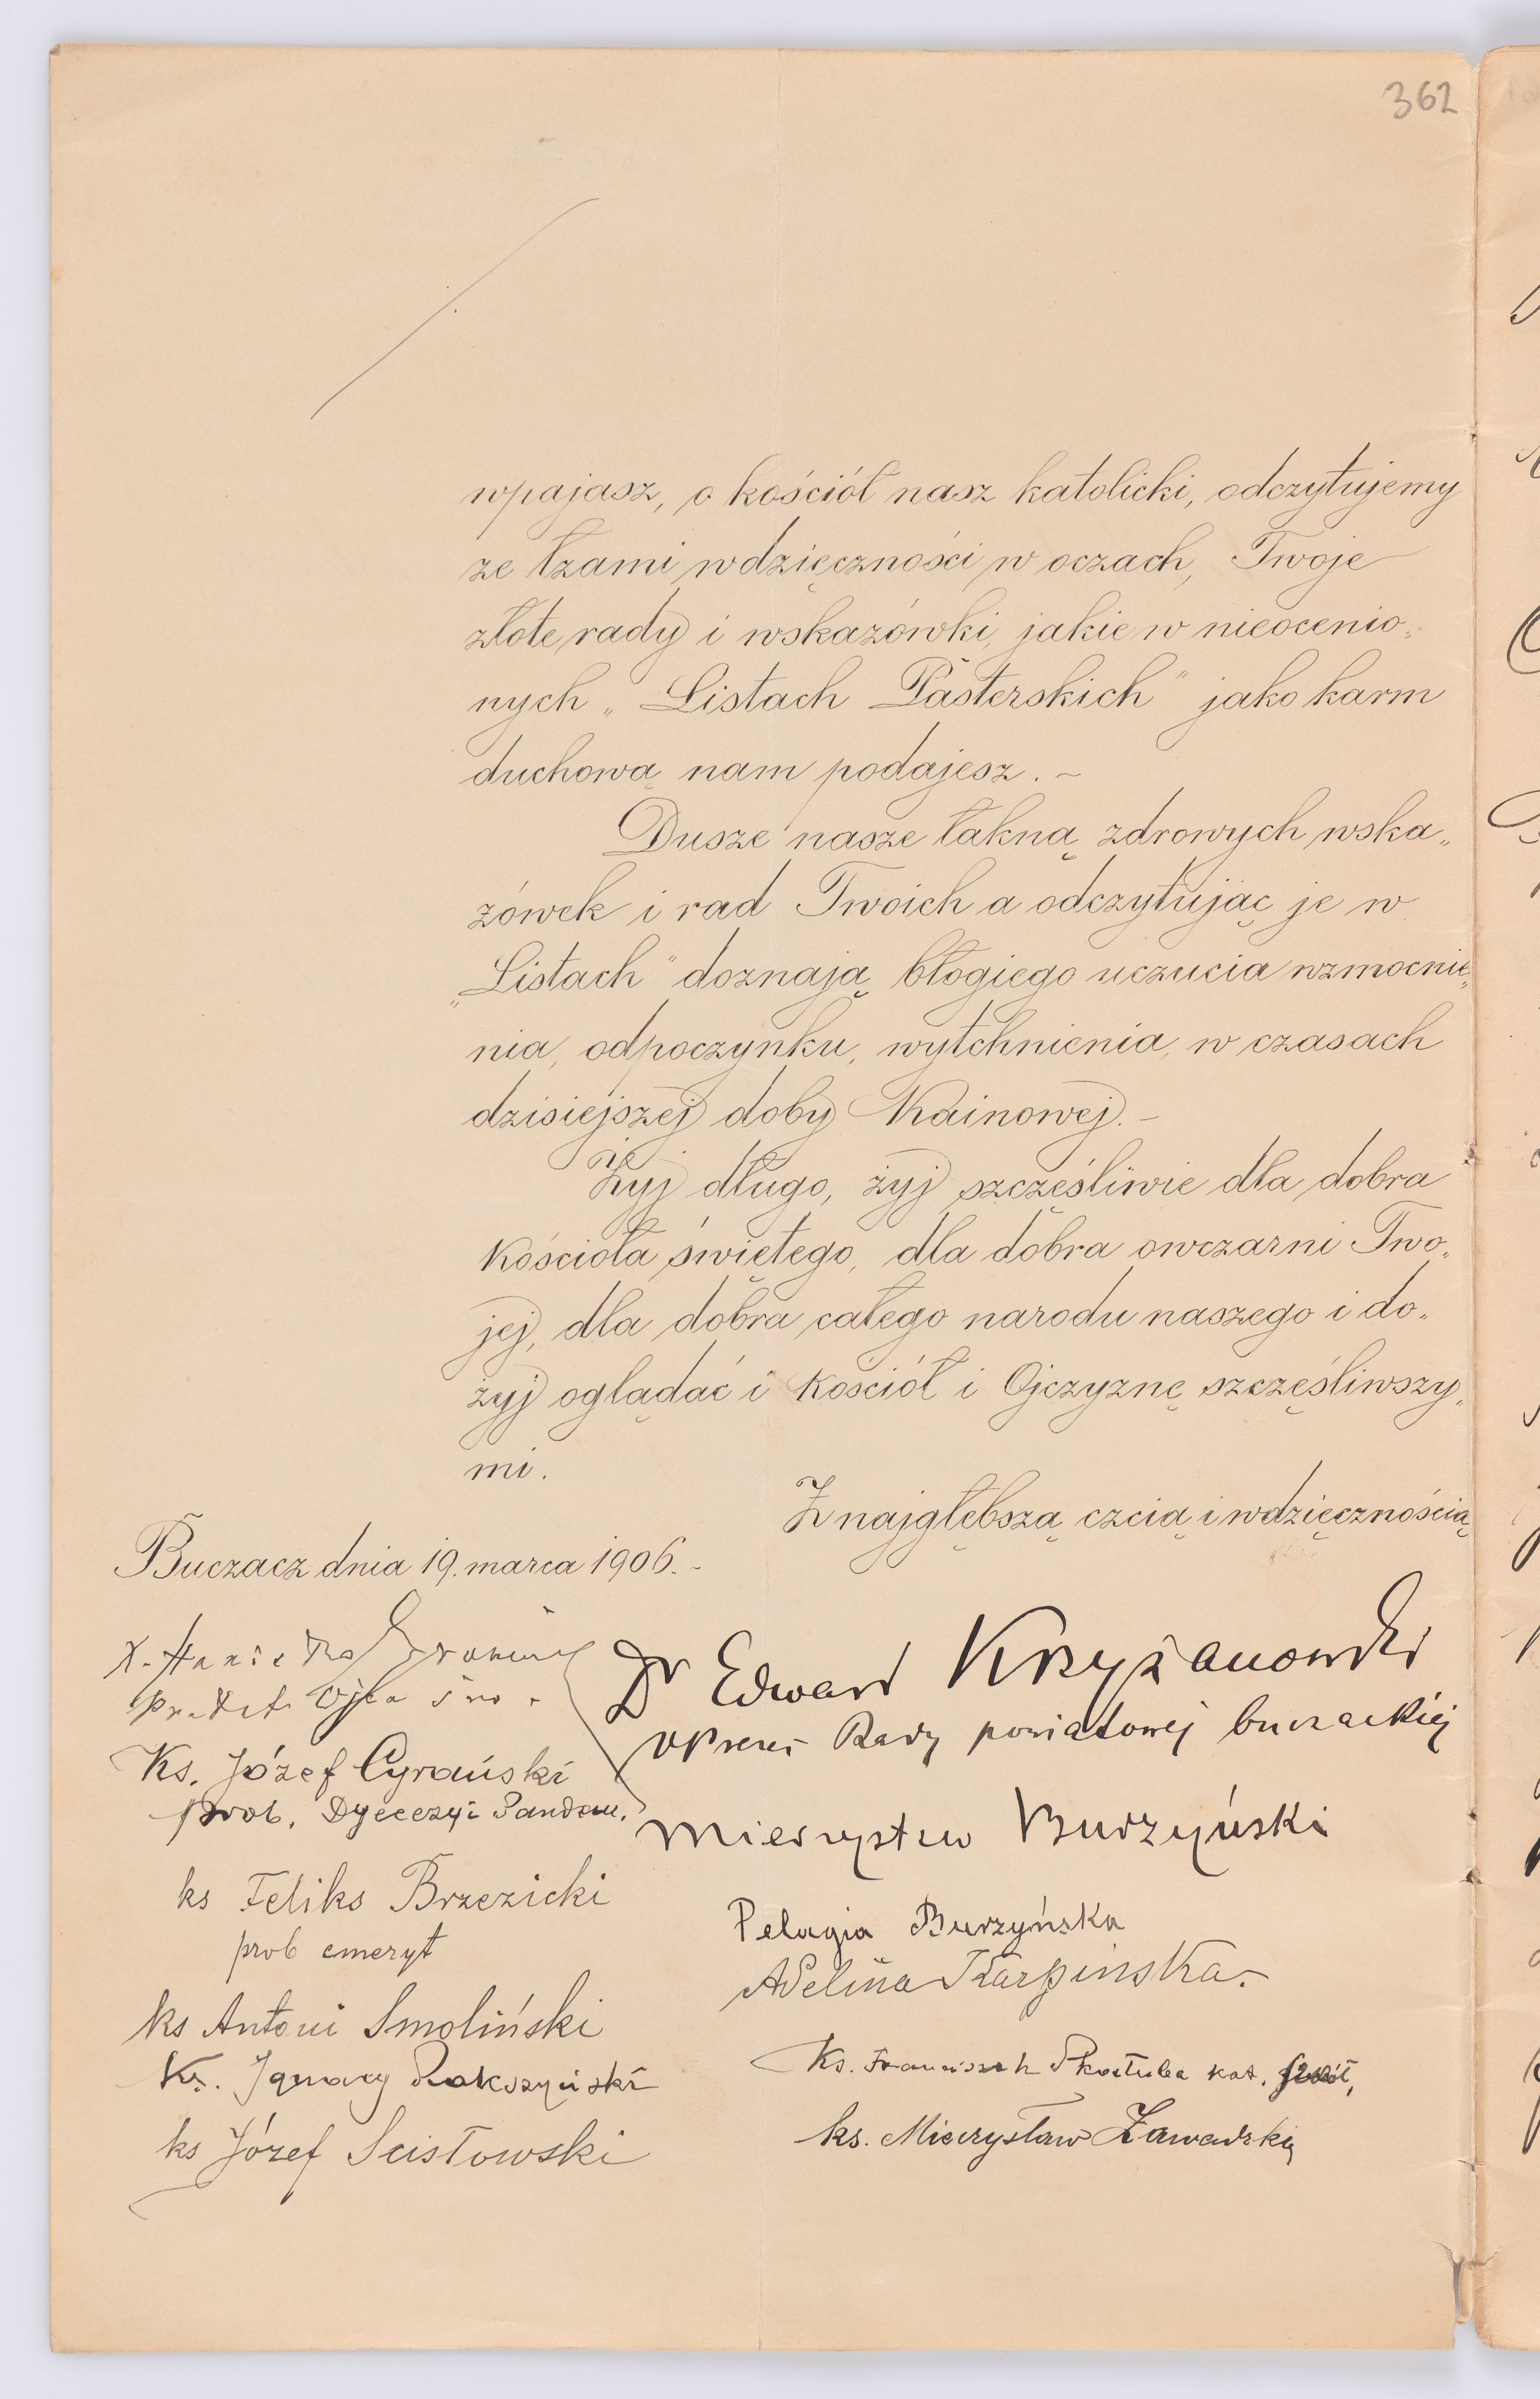 362
wpajasz, o kościół nasz katolicki, odczytujemy
ze łzami wdzięczności w oczach, Twoje
złote rady i wskazówki, jakie w nieocenio„
nych „Listach Pasterskich" jako karm
duchową nam podajesz. –
Dusze nasze łakną zdrowych wska„
zówek i rad Twoich a odczytując je w
„Listach" doznają błogiego uczucia wzmocnie„
nia, odpoczynku, wytchnienia, w czasach
dzisiejszej doby Kainowej. –
Żyj długo, żyj szczęśliwie dla dobra
Kościoła świętego, dla dobra owczarni Two„
jej, dla dobra całego narodu naszego i do„
żyj oglądać i Kościół i Ojczyznę szczęśliwszy„
mi.
Z najgłębszą czcią i wdzięcznością
Buczacz dnia 19. marca 1906. –
X. Stanisław
Ojca św.
Ks. Józef Cyrański
prob. Dyecezyi Sandom.
ks Feliks Brzezicki
prob emeryt
ks Antoni Smoliński
Ks. Ignacy
ks Józef Scisłowski
Dr Edward Krzyżanowski
VPrezes Rady powiatowej buczackiej
Mieczysław Burzyński
Pelagia Burzyńska
Adelina Karpinska.
Ks. Franciszek Skortuba kat. szkół,
ks. Mieczysław Zawadzki